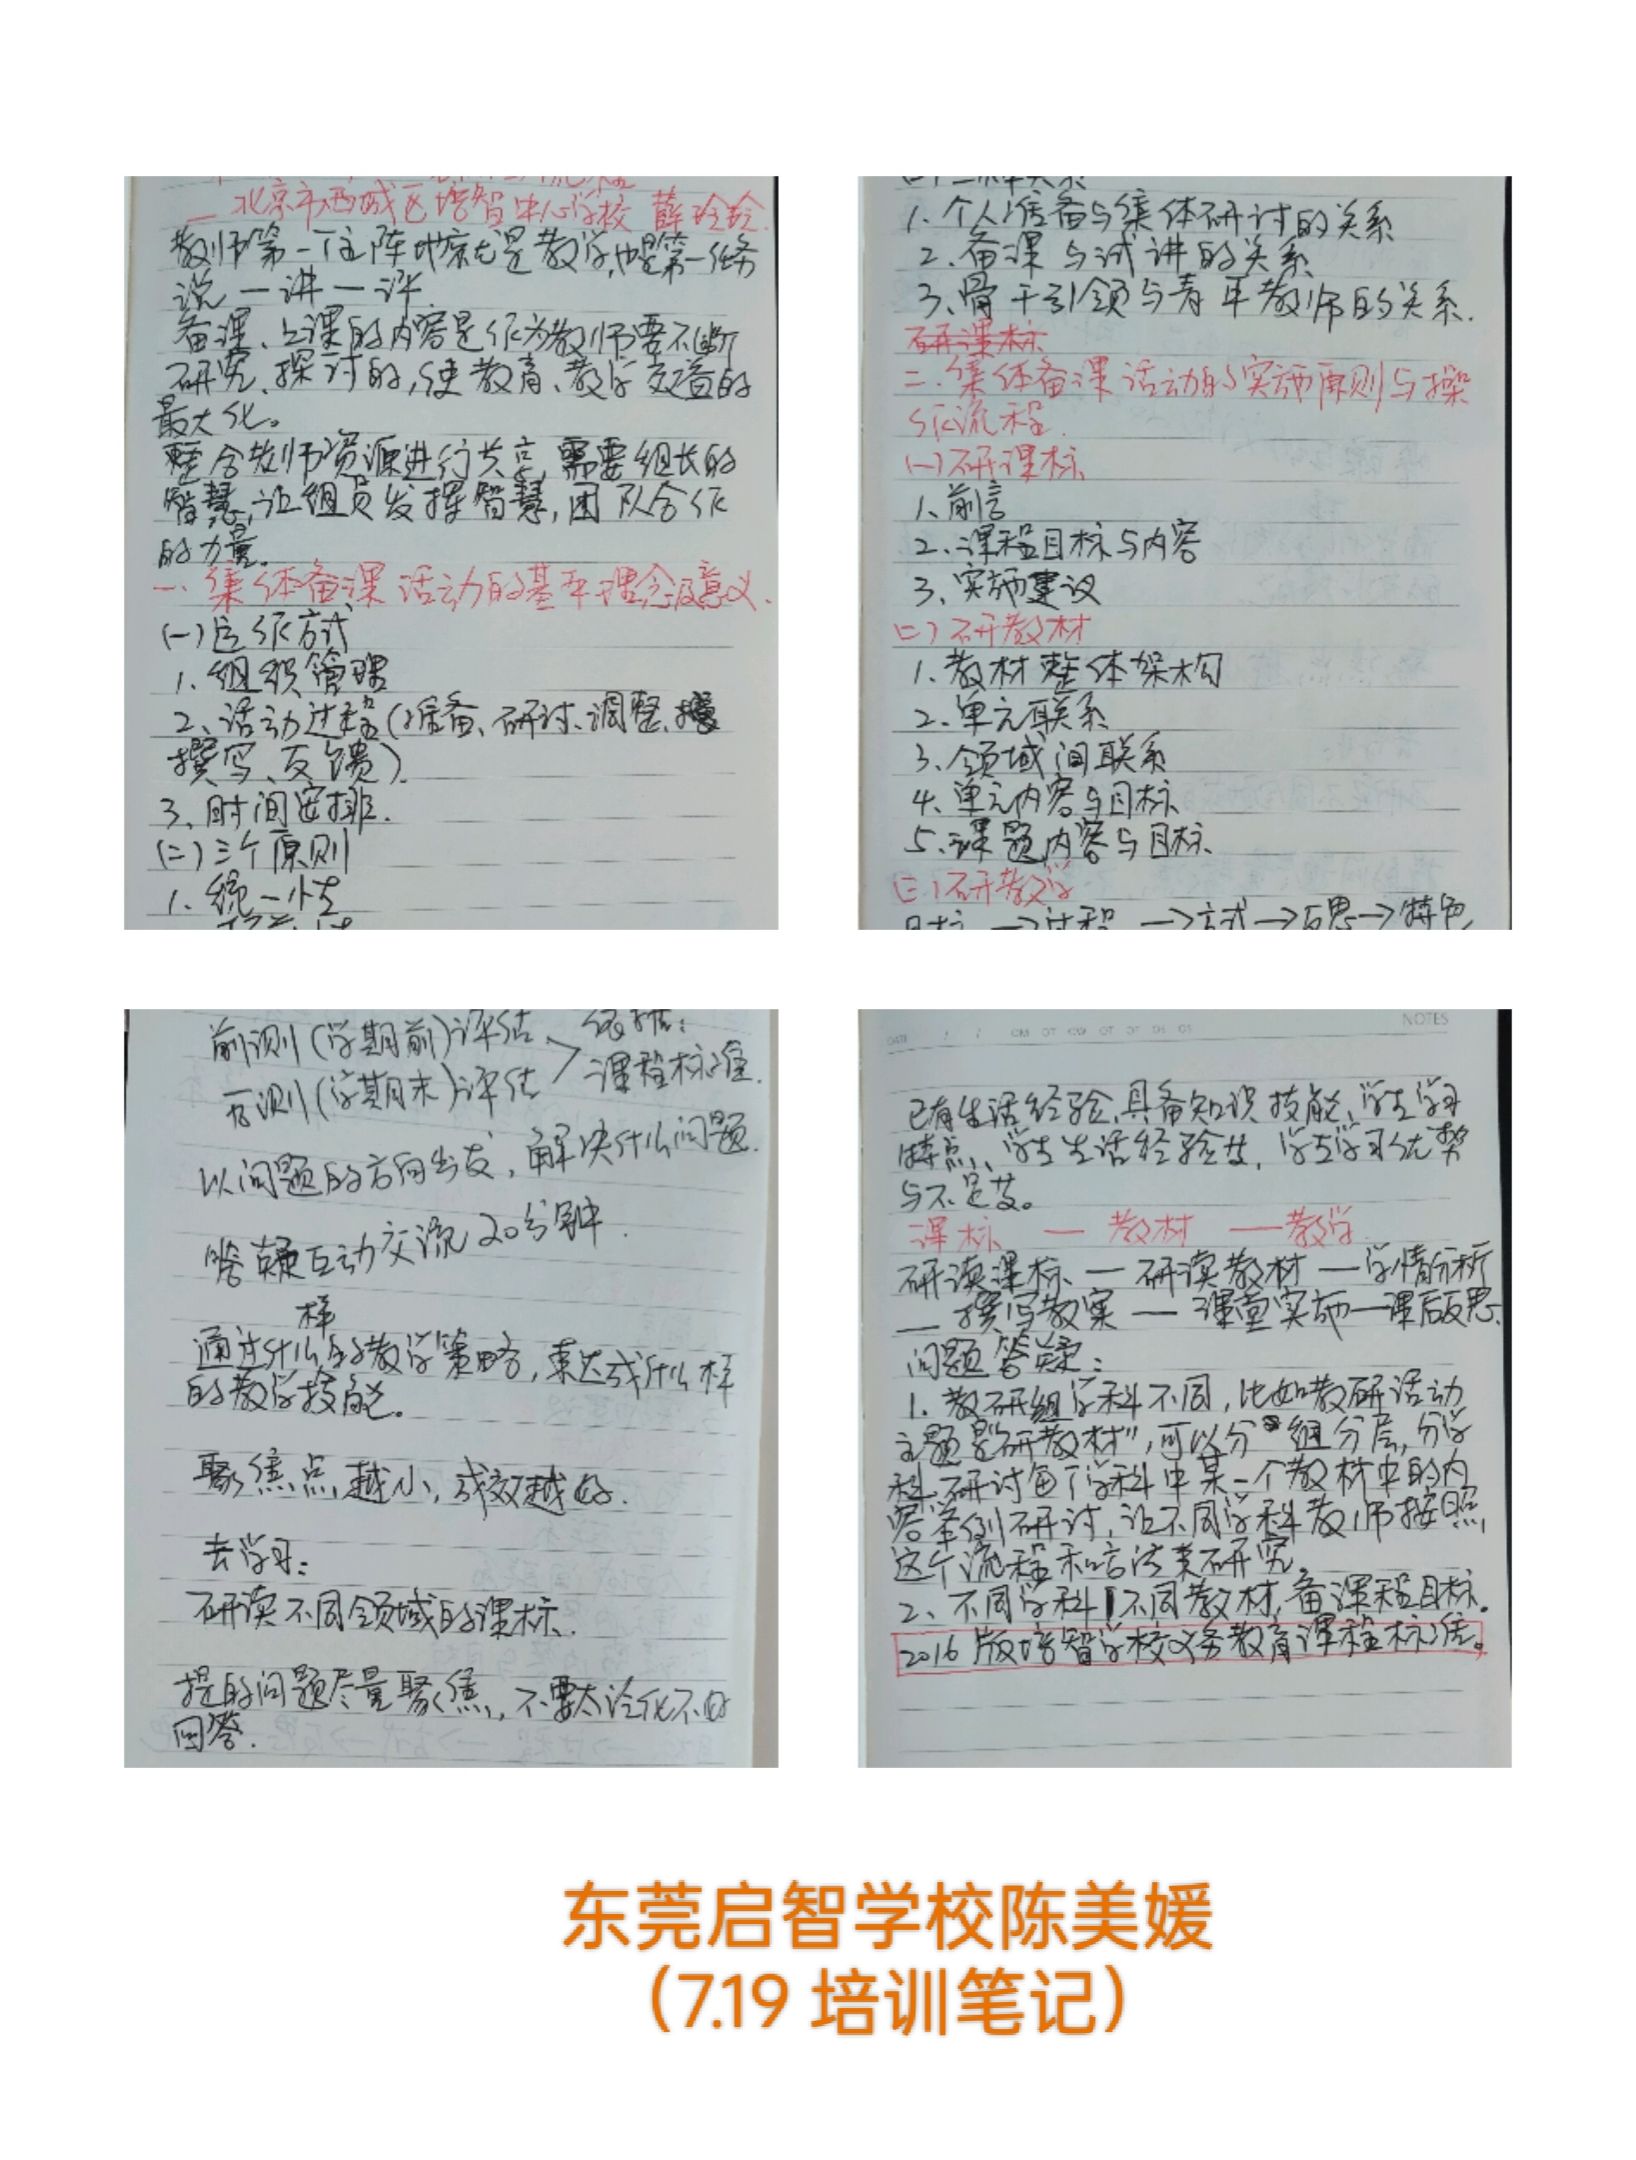 北京市西城区培智中心学校 薛玲玲
教师第一个主阵地就是教学,也是第一任务
说一讲一评
备课、上课的内容是作为教师要不断
研究、探讨的,使教育、教学效益的
最大化。
整合教师资源进行共享,需要组长的
智慧,让组员发挥智慧,团队合作
的力量。
一、集体备课活动的基本理念及意义.
(一)运作方式
1、组织管理
2、活动过程(准备、研讨、调整、
撰写、反馈).
3、时间安排.
(二)三个原则
1、统一性
1、个人准备与集体研讨的关系
2、备课与试讲的关系
3、骨干引领与青年教师的关系.
研课标
二、集体备课活动的实施原则与操
作流程.
(一)研课标
1、前言
2、课程目标与内容
3、实施建议
(二)研教材
1、教材整体架构
2、单元联系
3、领域间联系
4、单元内容与目标
5、课题内容与目标
(三)研教学
目标→过程→方式→反思→特色
前测(学期前)评估 > 依据:
后测(学期末)评估 课程标准.
以问题的方向出发,解决什么问题.
答疑互动交流20分钟.
通过什么样的教学策略,来达成什么样
的教学技能。
聚焦点越小,成效越好.
去学习:
研读不同领域的课标.
提的问题尽量聚焦,不要太泛化不好
回答.
NOTES
已有生活经验,具备知识技能、学生学习
特点、学生生活经验等,学生学习优势
与不足等。
课标 — 教材 — 教学
研读课标 — 研读教材 — 学情分析
— 撰写教案 — 课堂实施 — 课后反思.
问题答疑:
1、教研组学科不同,比如教研活动
主题是“研教材”,可以分组分层,分学
科研讨每个学科中某一个教材中的内
容举例研讨,让不同学科教师按照
这个流程和方法来研究.
2、不同学科不同教材,备课程目标.
2016版培智学校义务教育课程标准。
东莞启智学校陈美媛
（7.19 培训笔记）